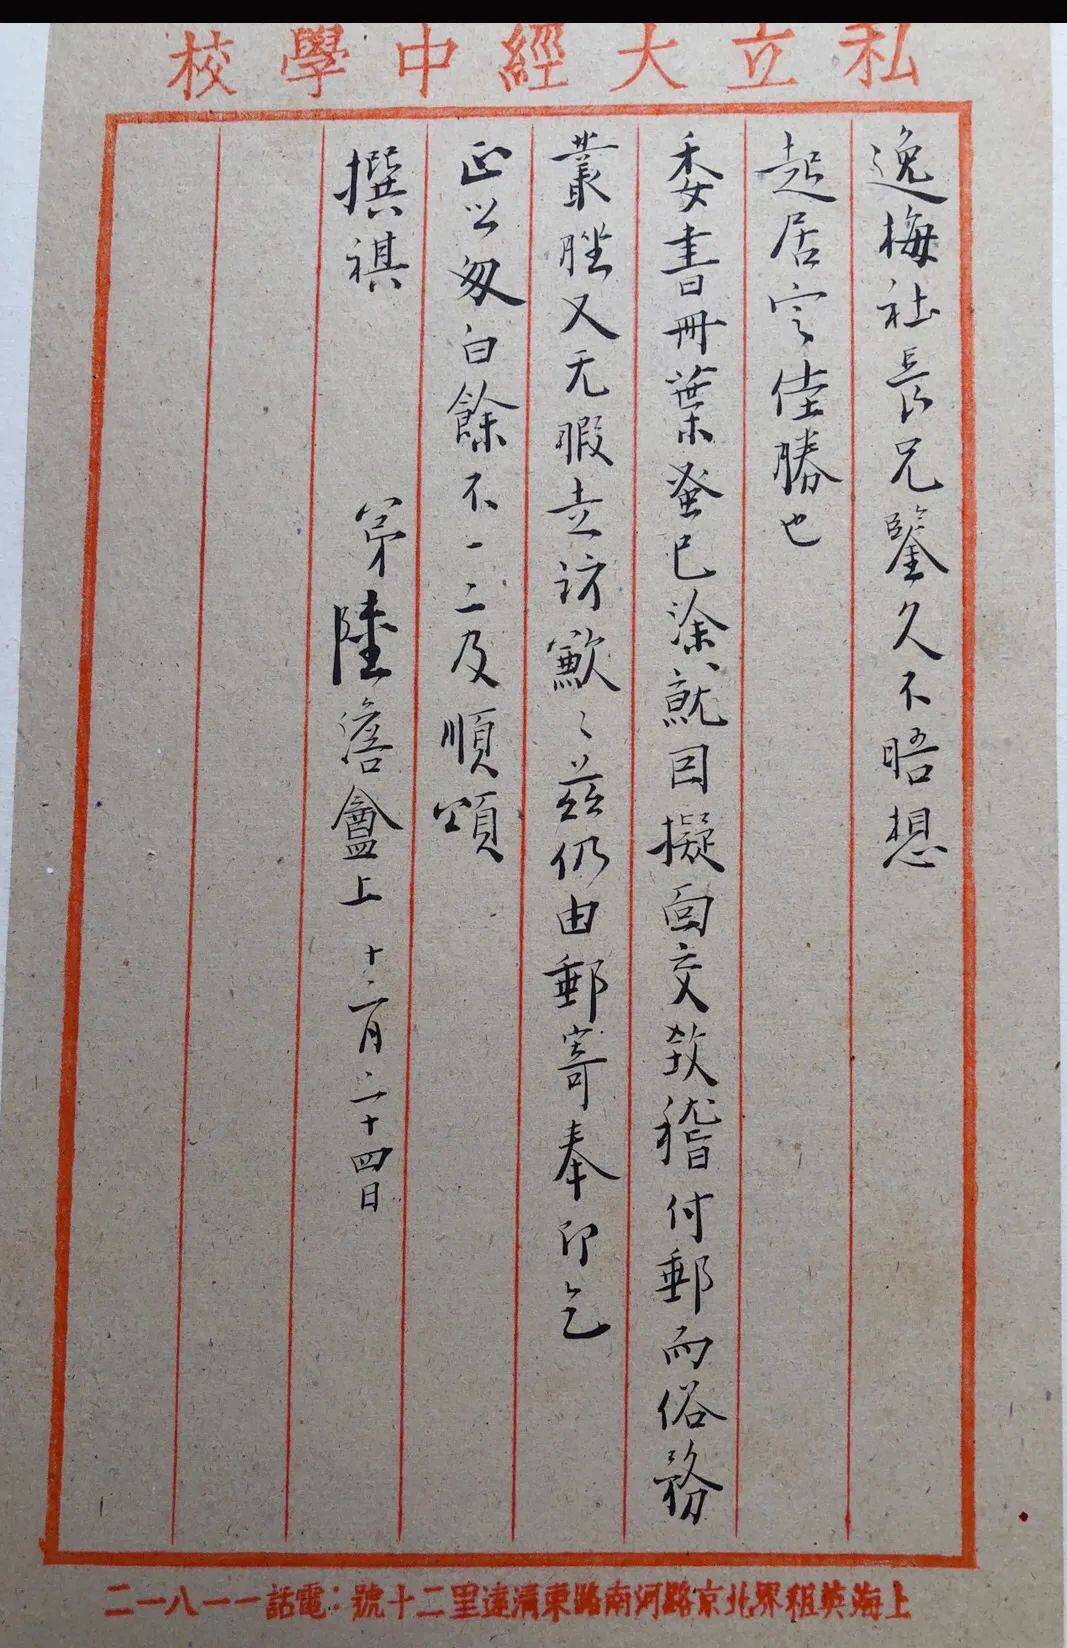 私立大經中學校
逸梅社長兄鑒久不晤想
起居定佳勝也
委書冊葉蚤已涂就因擬面交致稽付郵而俗務
叢脞又无暇走訪歉〻茲仍由郵寄奉即乞
正以匆白餘不一二及順頌
撰祺
弟陸澹盦上十二月二十四日
上海英租界北京路河南路東清遠里二十號：電話一一八一二